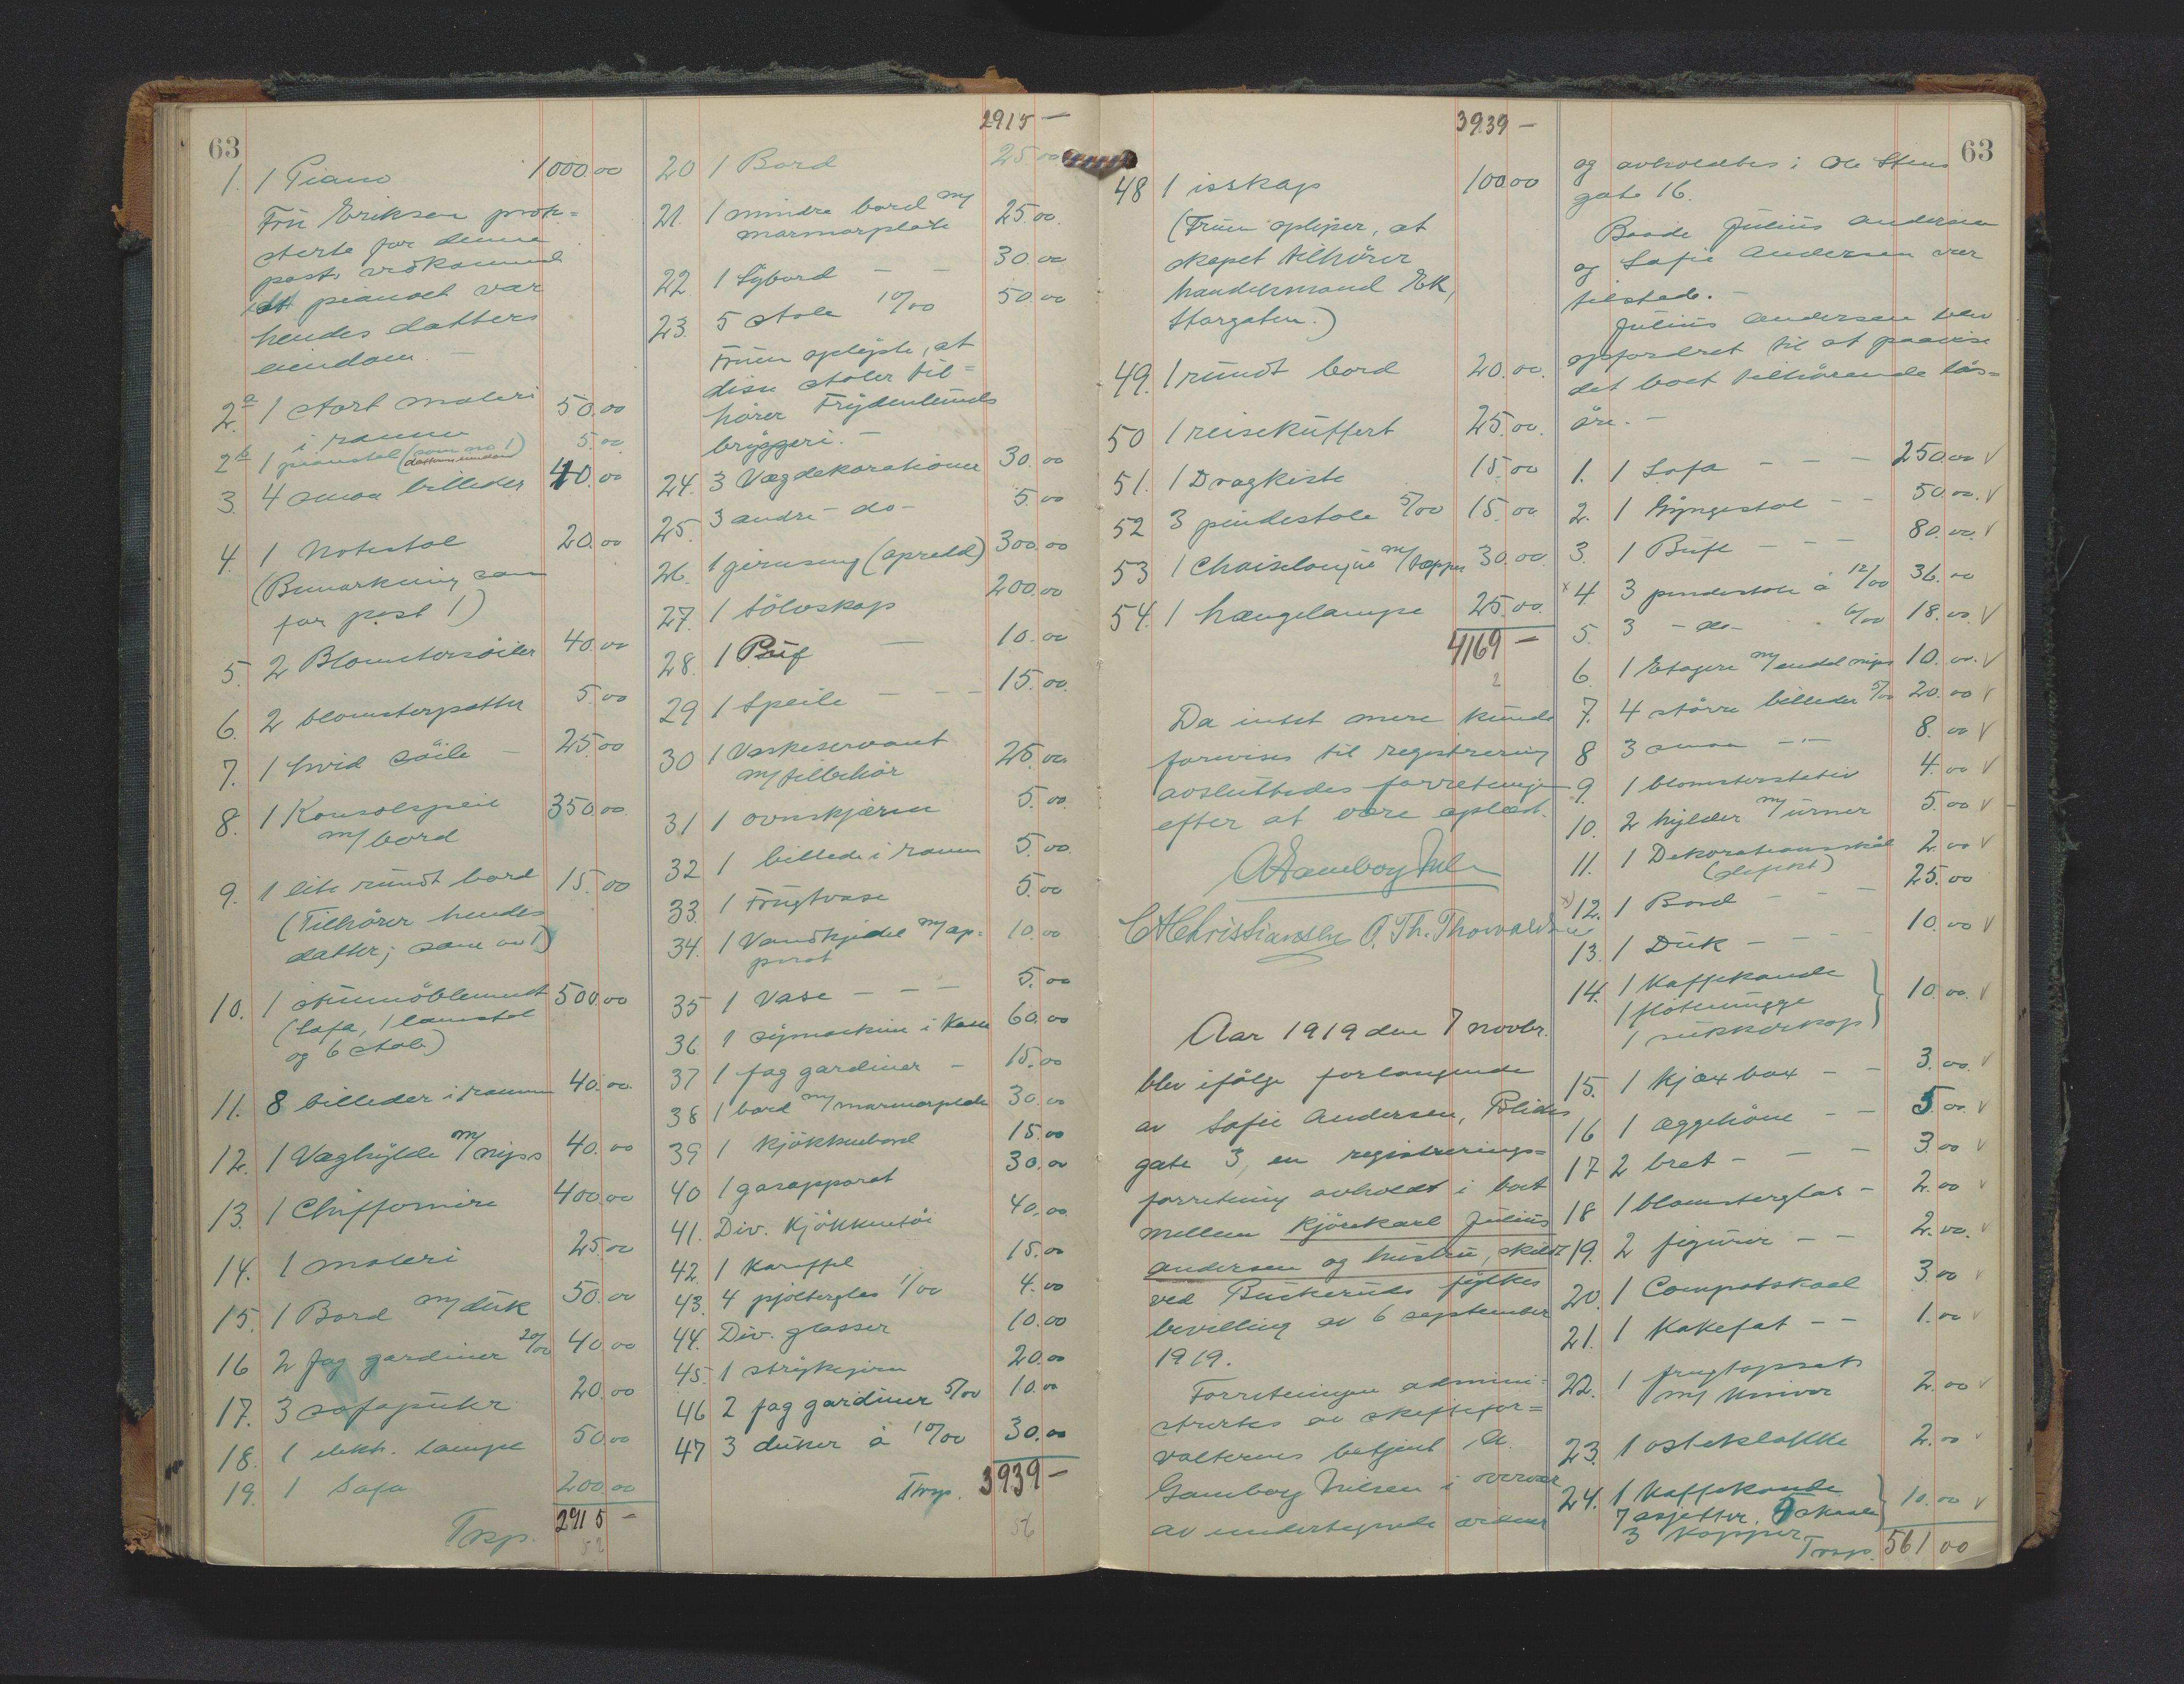 63
1. 1 Piano 1000.00
Fru Eriksen prote=
sterte for denne
post vedkommende
at pianoet var
hendes datters
eiendom. —
2a 1 stort maleri
i ramme 50.00
2b 1 pianostol (som no 1) 5.00
3. 4 smaa billeder 40.00
4. 1 Notestol 20.00
(Bemerkning som
for post 1)
5. 2 Blomstersøiler 40.00
6. 2 blomsterpotter 5.00
7. 1 hvid søile — 25.00
8. 1 Konsolspeil 350.00
m/bord
9. 1 lite rundt bord 15.00
(Tilhører hendes
datter; som no 1)
10. 1 stuemøblement 500.00
(Sofa, 1 lænestol
og 6 stole)
11. 8 billeder i ramme 40.00
12. 1 Væghylde m/nips 40.00
13. 1 Chiffoniere 400.00
14. 1 maleri 25.00
15. 1 Bord m/duk 50.00
16 2 fag gardiner 20/00 40.00
17. 3 sofaputer 20.00
18. 1 elektr. lampe 50.00
19. 1 Sofa 200.00
Trsp. 2915 —
52
2915 —
20 1 Bord 25.00
21. 1 mindre bord m/ 25.00.
marmorplate
22. 1 Sybord — — 30.00
23. 5 stole 10/00 50.00
Fruen oplyste, at
disse stoler til=
hører Frydenlunds
bryggeri. —
24. 3 Vægdekorationer 30.00
25. 3 andre - do - 5.00
26. 1 (opredd) 300.00
27. 1 sølvskap 200.00
28. 1 Puf — 10.00
29 1 Speile — — — 15.00.
30 1 Vaskeservant 25.00.
m/tilbehør
31 1 ovnskjærm 5.00.
32 1 billede i ramme 5.00.
33. 1 Frugtvase 5.00
34. 1 Vandkjedel m/ap= 10.00
parat
35 1 Vase — — — 5.00
36 1 symaskine i Kasse 60.00
37 1 fag gardiner — 15.00
38 1 bord m/marmorplate 30.00
39 1 kjøkkenbord 15.00
40 1 gasapparat 30.00
41. Div. Kjøkkentøi 40.00.
42. 1 Karaffel 15.00
43. 4 pjolterglas 1/00 4.00
44. Div. glasser 10.00
45. 1 strykejern 20.00
46 2 fag gardiner 5/00 10.00
47 3 duker à 10/00 30.00
Trsp. 3939 —
56
3939 —
48 1 isskap 100.00
(Fruen oplyser, at
skapet tilhører
handelsmand Ek,
Storgaten.)
49. 1 rundt bord 20.00.
50 1 reisekuffert 25.00.
51. 1 Dragkiste 15.00
52 3 pindestole 5/00 15.00
53 1 Chaiselongue m/tæppe 30.00.
54. 1 hængelampe 25.00.
4169 —
2
Da intet mere kunde
forevises til registrering
avsluttedes forretningen
efter at være oplæst.
A Gamborg Nielsen
C A Christiansen O. Th. Thorvaldsen
Aar 1919 den 7 novbr.
blev ifølge forlangende
av Sofie Andersen, Blichs
gate 3, en registrerings=
forretning avholdt i boet
mellem Kjørekarl Julius
Andersen og hustru, skilt
ved Buskeruds fylkes
bevilling av 6 september
1919.
Forretningen admini=
strertes av skiftefor=
valterens betjent A.
Gamborg Nielsen i overvær
av undertegnede vidner
63
og avholdtes i Ole Steens
gate 16.
Baade Julius Andersen
og Sofie Andersen var
tilstede. —
Julius Andersen blev
opfordret til at paavise
det boet tilhørende løs=
øre. —
1. 1 Sofa — — — 250.00 V
2. 1 Gyngestol — — 50.00. V
3. 1 Bufe — — — 80.00. V
x 4. 3 pindestole à 12/00 36.00
5. 3 - do - 6/00 18.00. V
6. 1 Etagere m/endel nips 10.00. V
7. 4 større billeder 5/00 20.00 V
8 3 smaa —"— 8.00 V
9. 1 blomsterstativ 4.00 V
10. 2 hylder m/urner 5.00 V
11. 1 Dekorationsskål 2.00 V
(defekt)
x) 12. 1 Bord — — — 25.00
13. 1 Duk — — — 10.00 V
14. 1 Kaffekande
1 fløtemugge
1 sukkerkop } 10.00. V
15. 1 kjæxbox — — 3.00. V
16 1 æggehøne — — 5.00. V
17 2 bret — — — 3.00 V
18 1 blomsterglas — 2.00 V
19. 2 figurer — — 2.00. V
20. 1 Compotskaal 3.00 V
21. 1 Kakefat — — 1.00 V
22. 1 frugtopsats
m/ kniver 2.00 V
23. 1 osteklokke 2.00 V
24. 1 Kaffekande
7 asjetter, 4 skaale
3 Kopper } 10.00 V
Trsp. 561 00